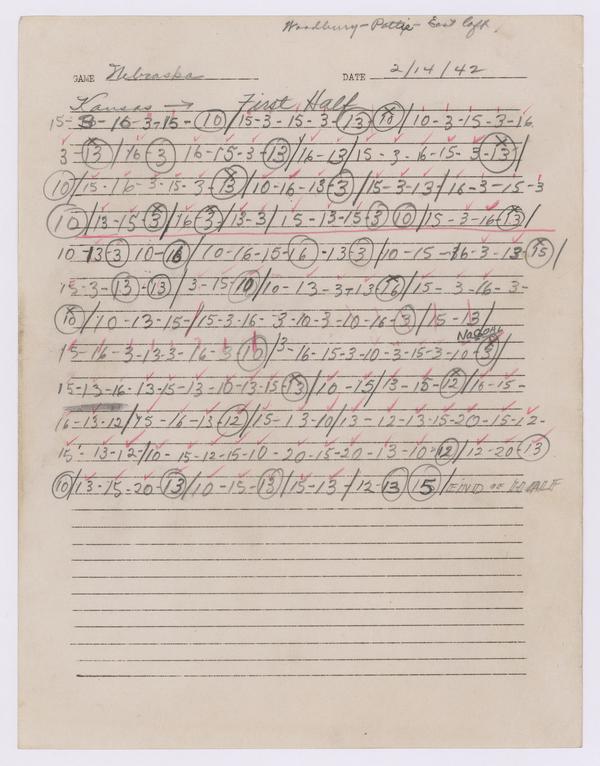 Woodbury - Pattie - East Caft,
GAME Nebraska DATE 2/14/42
Kansas → First Half
15-3-16-3-15-(10)/15-3-15-3-(13)(10)/10-3-15-3-16
3-(13)/16-(3) 16-15-3-(13)/16-13/15-3-16-15-3-(13)/
(10)/15-16-3-15-3-(13)/10-16-13-(3)/15-3-13-/16-3-15-3
(10)/13-15-(3)/16-(3)-/13-3/15-13-15-(3)(10)/15-3-16-(13)/
10-13-(3) 10-(16)/10-16-15-(16)-13-(3)/10-15-16-3-13-(15)/
15-3-(13)-(13)/3-15-(10)/10-13-3-13-(16)/15-3-16-3-
(10)/10-13-15-/15-3-16-3-10-3-10-16-(3)/15-13/
15-16-3-13-3-16-3-(10)/3-16-15-3-10-3-15-3-10-(3)/
15-13-16-13-15-13-10-13-15-(13)/10-15/13-15-(12)/16-15-
16-13-12/15-16-13-(12)/15-13-10/13-12-13-15-20-15-12-
15-13-12-/10-15-12-15-10-20-15-20-13-10-(12)/12-20-(13)
(10)/13-15-20-(13)/10-15-(13)/15-13-/12-(13)(15)/END OF HALF